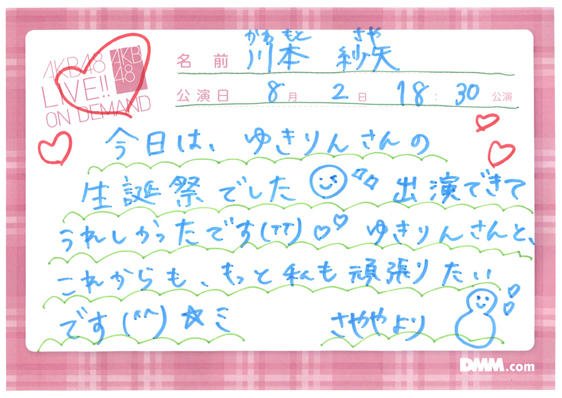 AKB48
LIVE!!
ON DEMAND
AKB
48
かわもと さや
名前 川本 紗矢
公演日 8月 2日 18:30 公演
今日は、ゆきりんさんの
生誕祭でした 出演できて
うれしかったです(TT)♡♡ ゆきりんさんと、
これからも、もっと私も頑張りたい
です(^^)☆ミ さややより
DMM.com